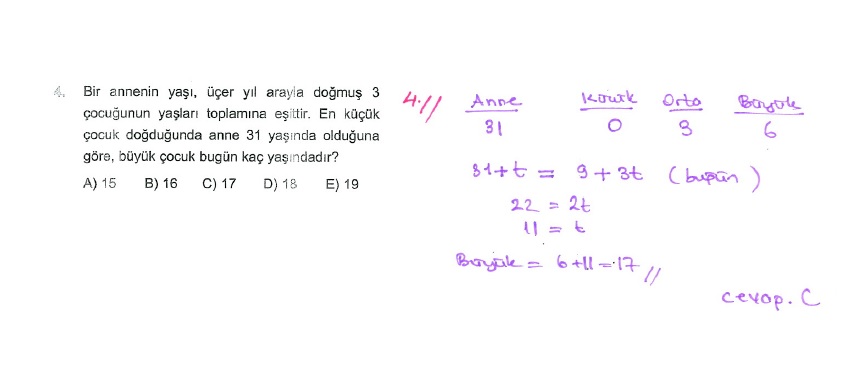 4. Bir annenin yaşı, üçer yıl arayla doğmuş 3
çocuğunun yaşları toplamına eşittir. En küçük
çocuk doğduğunda anne 31 yaşında olduğuna
göre, büyük çocuk bugün kaç yaşındadır?
A) 15 B) 16 C) 17 D) 18 E) 19
4.//
Anne Küçük Orta Büyük
31 0 3 6
31+t = 9+3t (bugün)
22 = 2t
11 = t
Büyük = 6+11=17//
cevap. C